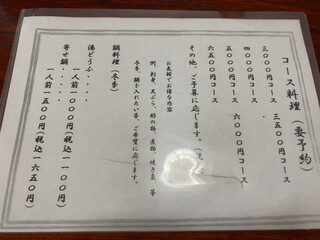 コース料理(要予約)
三〇〇〇円コース　三五〇〇円コース
四〇〇〇円コース
五〇〇〇円コース　六〇〇〇円コース
六五〇〇円コース
その他、ご予算に応じます。
お気軽でお得な内容
例、刺身、天ぷら、酢の物、煮物、焼き魚、等
冬季、鍋を入れたい等、ご希望に応じます。
鍋料理(冬季)
湯どうふ・・・・
一人前一〇〇〇円(税込一一〇〇円)
寄せ鍋・・・・
一人前一五〇〇円(税込一六五〇円)